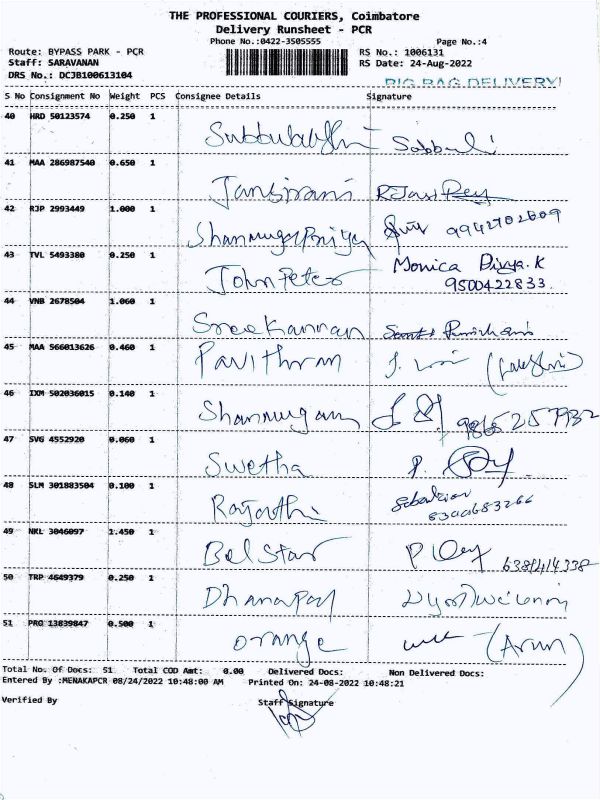 THE PROFESSIONAL COURIERS, Coimbatore
Delivery Runsheet - PCR
Phone No.:0422-3505555 Page No.:4
Route: BYPASS PARK - PCR RS No.: 1006131
Staff: SARAVANAN RS Date: 24-Aug-2022
DRS No.: DCJB100613104
BIG BAG DELIVERY!
S No Consignment No Weight PCS Consignee Details Signature
40 HRD 50123574 0.250 1
Subbulakshmi Subbuli
41 MAA 286987540 0.650 1
Jansirani
42 RJP 2993449 1.000 1
ShanmugaPriya 9942702609
43 TVL 5493380 0.250 1 Monica Divya.K
John Peter 9500422833.
44 VNB 2678504 1.060 1
Sree Kannan
45 MAA 566013626 0.460 1
Pavithran
46 IXM 502036015 0.140 1
Shanmugam 9865257932
47 SVG 4552920 0.060 1
Swetha P.
48 SLM 301883504 0.100 1
Rajathi
49 NKL 3046097 1.450 1
Bel Star
50 TRP 4649379 0.250 1
Dhanapal
51 PRO 13839847 0.500 1
orange (Arun)
Total No. Of Docs: 51 Total COD Amt: 0.00 Delivered Docs: Non Delivered Docs:
Entered By :MENAKAPCR 08/24/2022 10:48:00 AM Printed On: 24-08-2022 10:48:21
Verified By Staff Signature